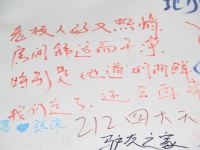 老板人好又热情
房间舒适而干净
特别是地道的湖鲜
我们走了，还会再
212 四大天
驴友之家